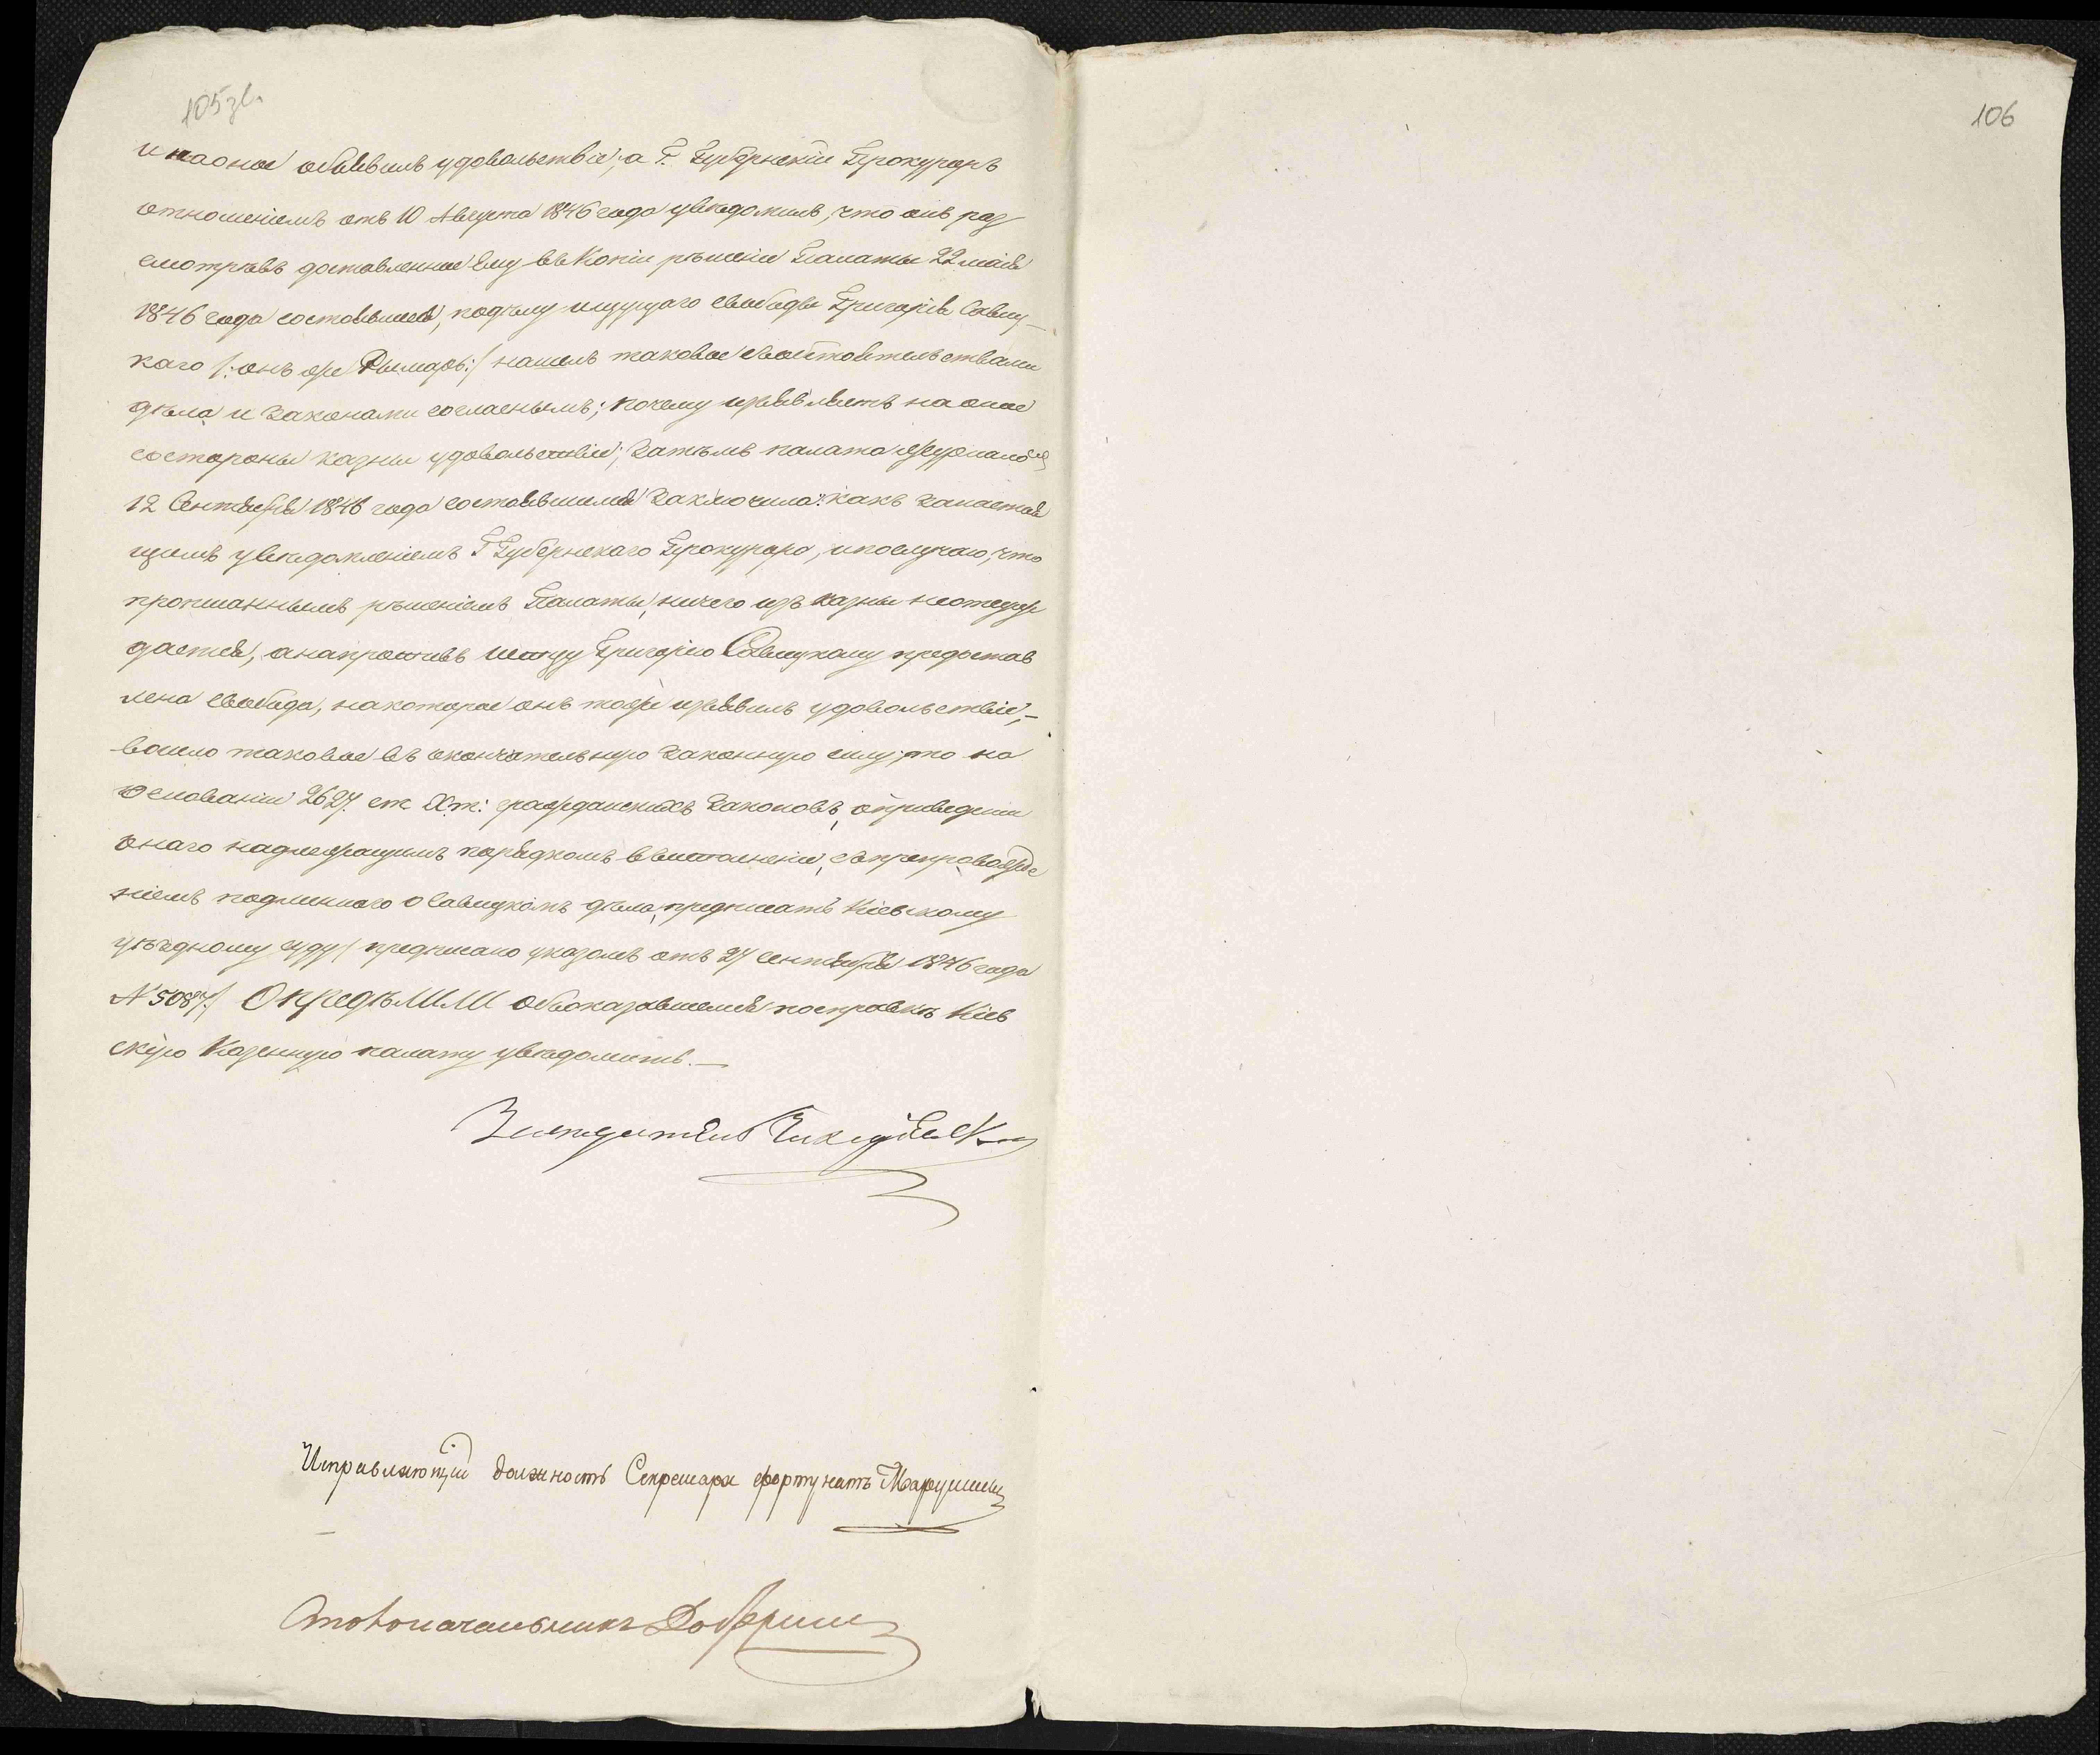 105зв.
и на оное объявилъ удовольствіе; а Г. Губернскій Прокуроръ
отношеніемъ отъ 10 Августа 1846 года увѣдомилъ, что онъ раз
смотрѣвъ доставленное ему въ Копіи рѣшеніе Палаты 22 маія
1846 года состоявшееся, по дѣлу ищущаго свободы Григорія Савиц-
каго /: онъ же Рымарь:/ нашелъ таковое съ обстоятельствами
дѣла и законами согласнымъ; почему изъявляетъ на оное
со стороны казны удовольствіе; затѣмъ палата журналомъ
12 Сентября 1846 года состоявшимся заключила: какъ за настоя
щимъ увѣдомленіемъ Г Губернскаго Прокурора, и по случаю, что
прописаннымъ рѣшеніемъ Палаты, ничего изъ казны не отсуж
дается, а напротивъ истцу Григорію Савицкому предостав
лена свобода, на которое онъ тоже изъявилъ удовольствіе,-
вошло таковое въ окончательную законную силу, то на
основаніи 2627. ст X т: гражданскихъ законовъ, о приведеніи
онаго надлежащимъ порядкомъ въ исполненіе, съ препровожде
ніемъ подлиннаго о Савицкомъ дѣла, предписать Кіевскому
уѣздному суду / предписано указомъ отъ 27 сентября 1846 года
N 5087./ Опредѣлили объ оказавшемся по справкѣ Кіев
скую Казенную палату увѣдомить.—
Исправляющій должность Секретаря Фортунатъ
Столоначальникъ
106